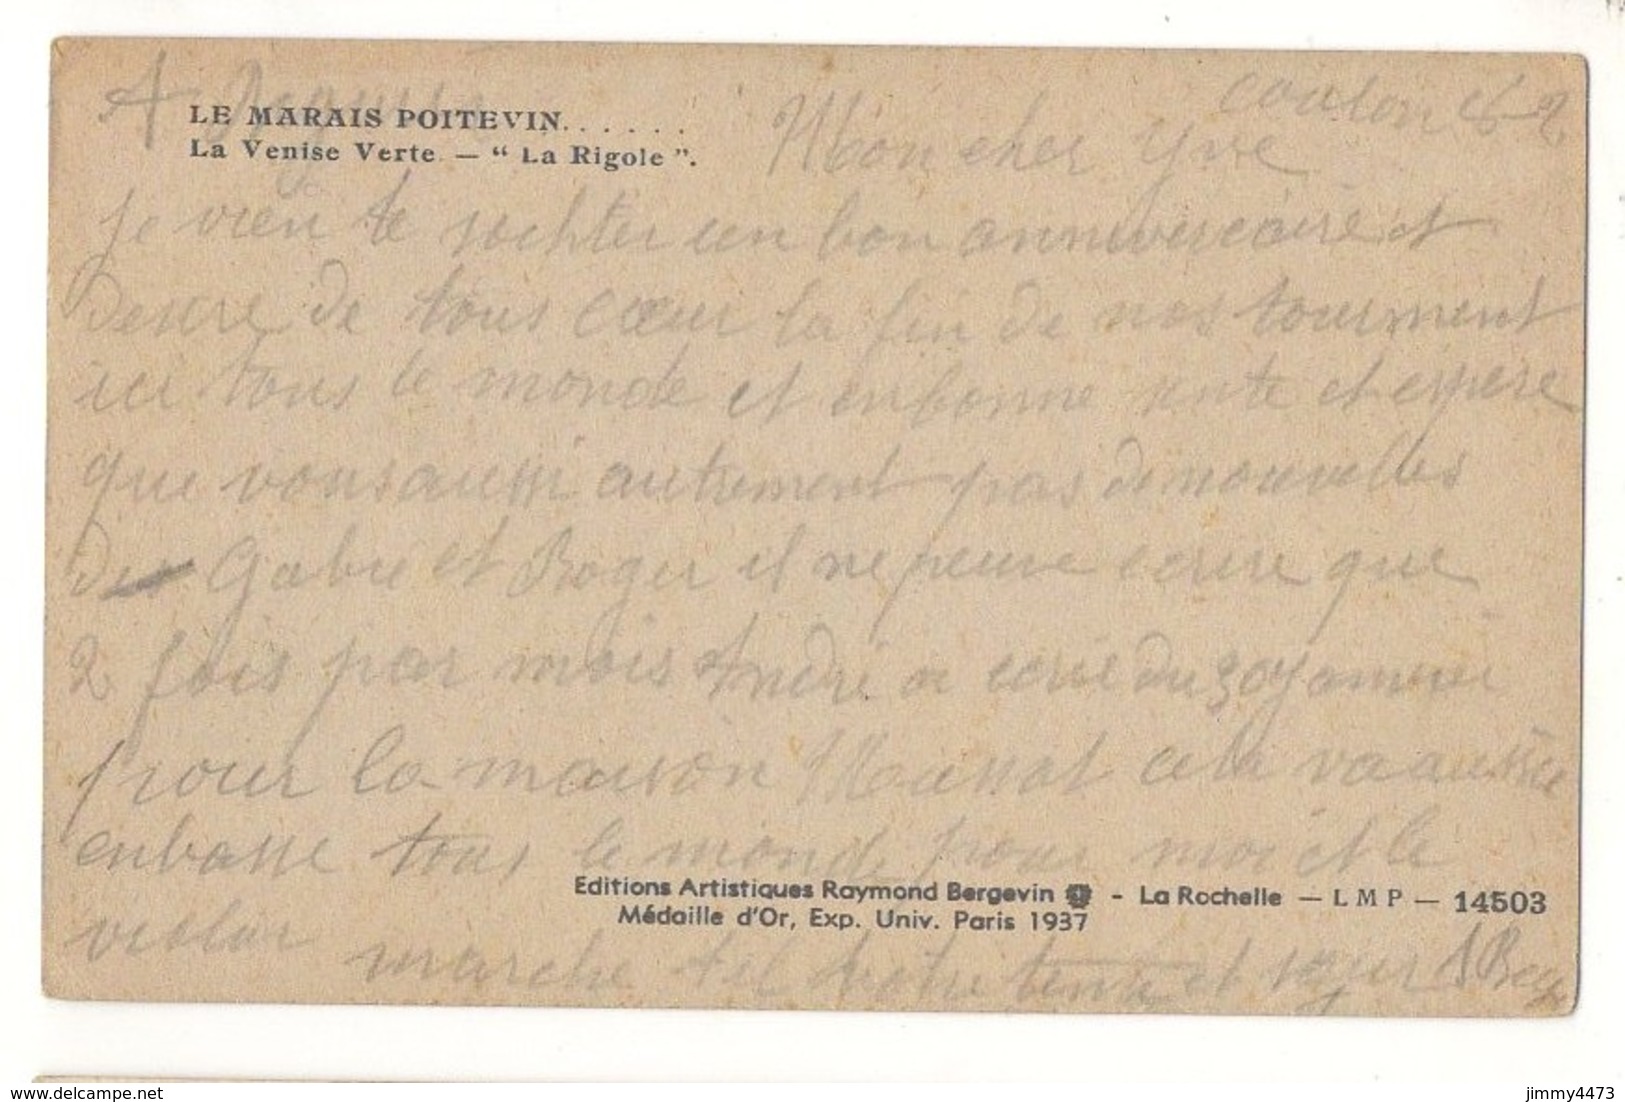 coulon
LE MARAIS POITEVIN. . . . . .
La Venise Verte — “ La Rigole ”.
Mon cher Yve
je vien te un bon et
Desire de tous cœur la fin de nos tourment
ici tous le monde et en bonne sente et espere
que vous aussi autrement pas de nouvelles
de Gabie et Roger il ne peuve ecrire que
2 fois par mois André a ecrie du 30
pour la maison cela va
enbasse tous le monde pour moi et le
Editions Artistiques Raymond Bergevin - La Rochelle — L M P — 14503
Médaille d'Or, Exp. Univ. Paris 1937
marche et
delcampe.net
jimmy4473